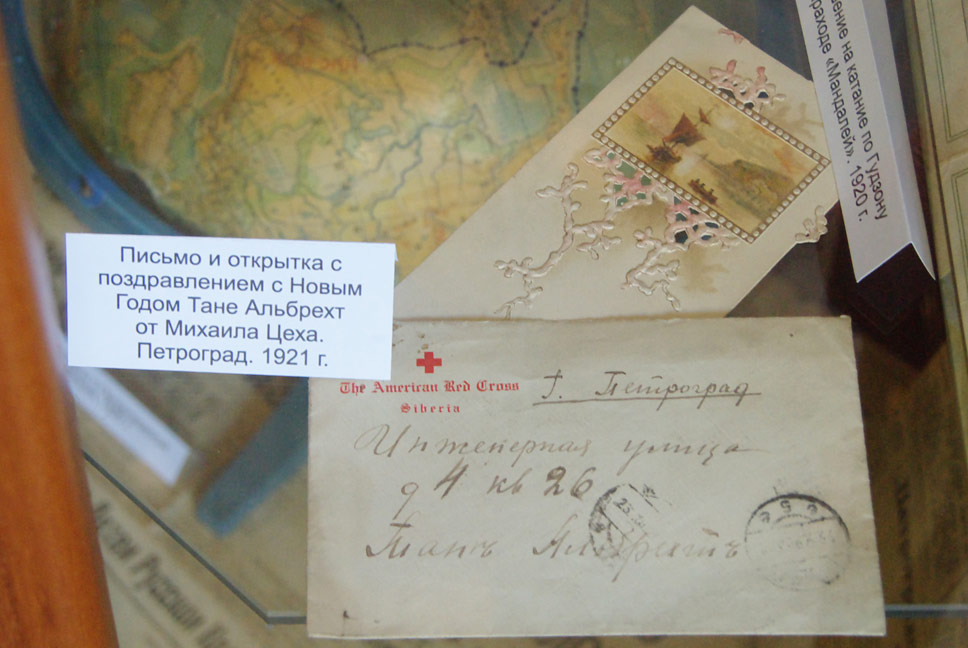 Письмо и открытка с
поздравлением с Новым
Годом Тане Альбрехт
от Михаила Цеха.
Петроград. 1921 г.
ение на катание по Гудзону
раходе «Мандалей». 1920 г.
The American Red Cross
Siberia
г. Петроград
Инженерная улица
д 4 кв 26
Танѣ Альбрехтъ
Русскій